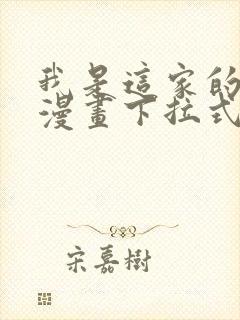 我是這家的
漫畫下拉式
宋嘉樹